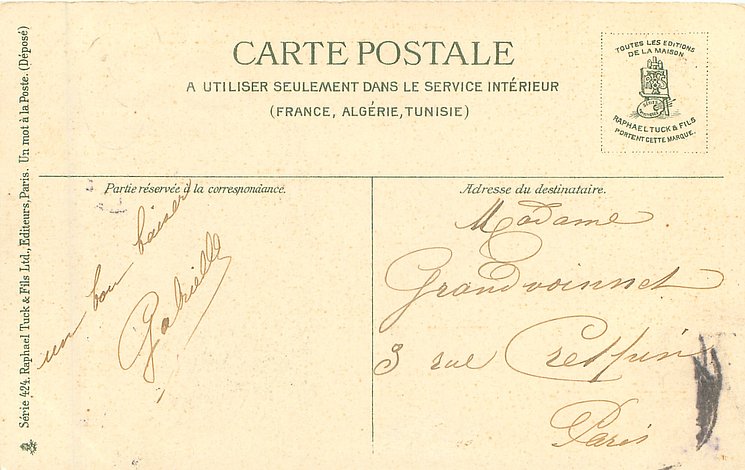 CARTE POSTALE
A UTILISER SEULEMENT DANS LE SERVICE INTÉRIEUR
(FRANCE, ALGÉRIE, TUNISIE)
TOUTES LES EDITIONS
DE LA MAISON
RAPHAEL TUCK & FILS
PORTENT CETTE MARQUE.
Partie réservée à la correspondance.
un bon baiser
Gabrielle
Adresse du destinataire.
Madame
Grandvoinnet
3 rue Crespin
Paris
Série 424. Raphael Tuck & Fils Ltd., Editeurs, Paris. Un mot à la Poste. (Déposé)